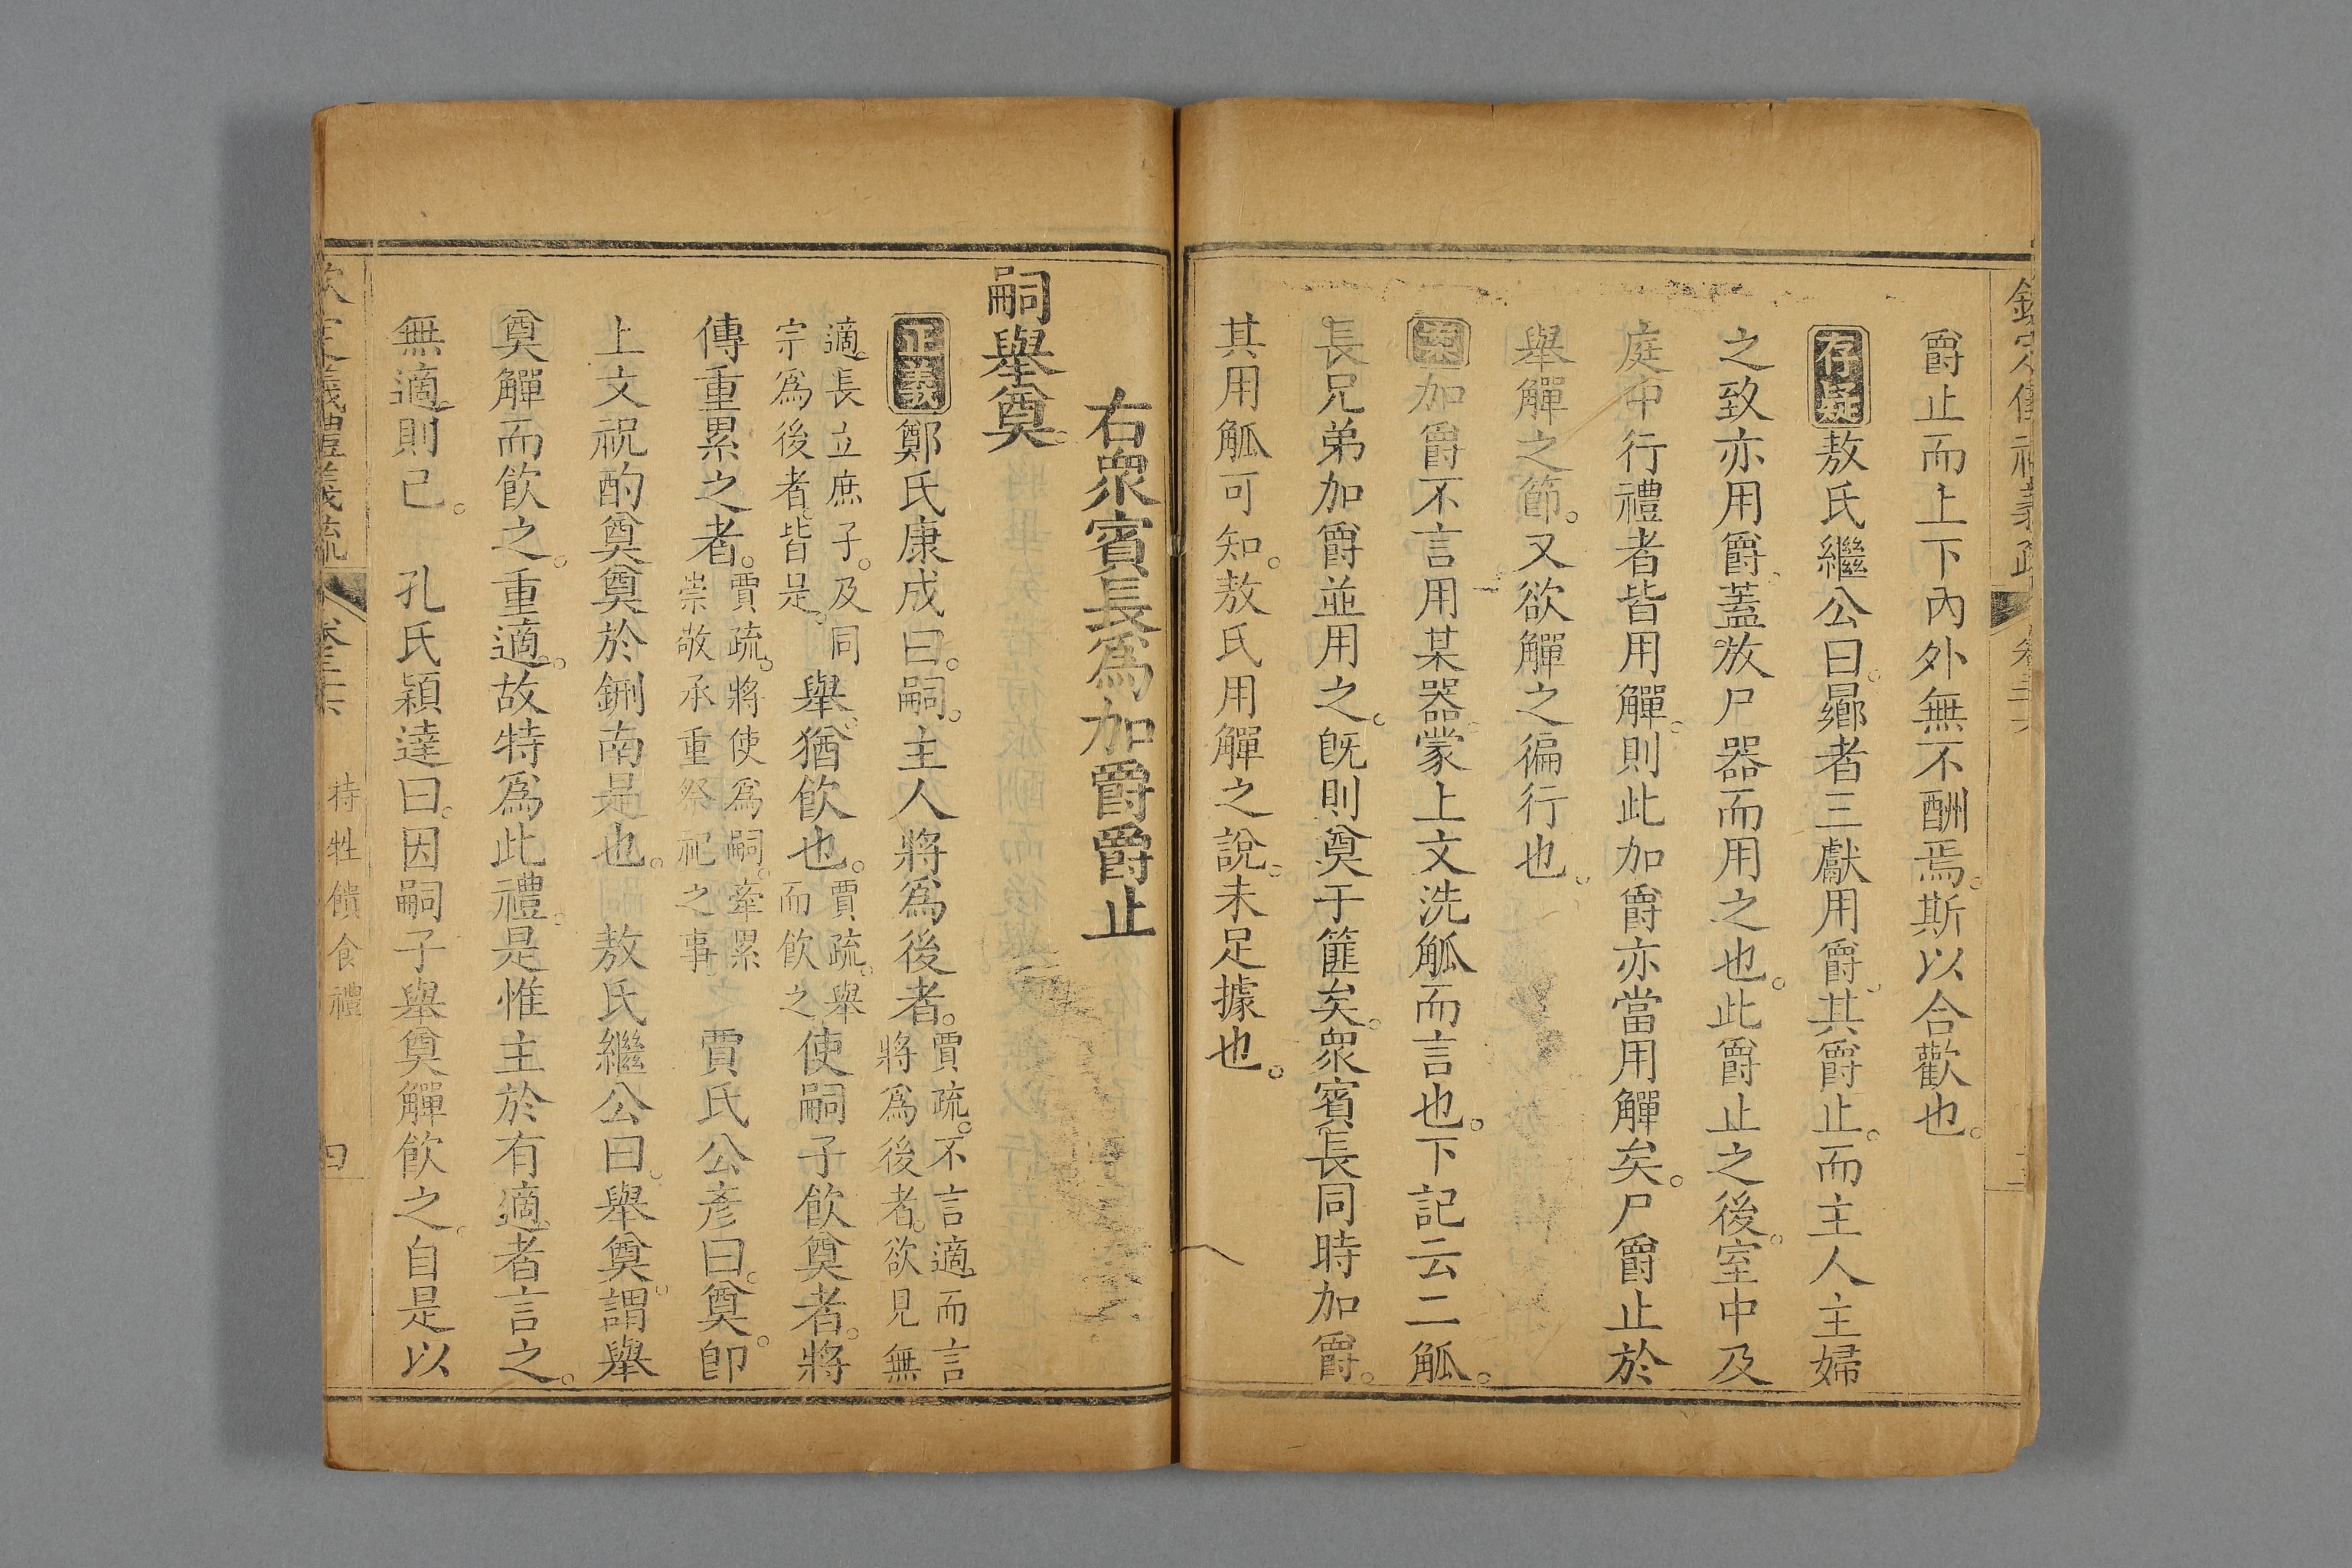 爵止而上下內外無不酬焉。斯以合歡也。
存疑敖氏繼公曰。曏者三獻用爵、其爵止。而主人主婦
之致亦用爵、蓋放尸器而用之也。此爵止之後。室中及
庭中行禮者皆用觶。則此加爵亦當用觶矣。尸爵止於
舉觶之節。又欲觶之徧行也。
案加爵不言用某器、蒙上文洗觚而言也。下記云二觚。
長兄弟加爵並用之。旣則奠于篚矣。衆賓長同時加爵。
其用觚可知。敖氏用觶之說、未足據也。
右衆賓長爲加爵爵止
嗣舉奠。
正義鄭氏康成曰。嗣。主人將爲後者。賈疏。不言適而言
將爲後者。欲見無
適長立庶子。及同
宗爲後者。皆是。舉、猶飮也。賈疏。舉
而飮之使嗣子飮奠者。將
傳重累之者。賈疏。將使爲嗣。牽累
崇敬承重祭祀之事。賈氏公彥曰。奠。卽
上文祝酌奠奠於鉶南是也。敖氏繼公曰。舉奠。謂舉
奠觶而飮之。重適。故特爲此禮。是惟主於有適者言之。
無適則已。孔氏穎達曰。因嗣子舉奠觶飮之。自是以
欽定義禮義疏 卷三十六 特牲饋食禮 四